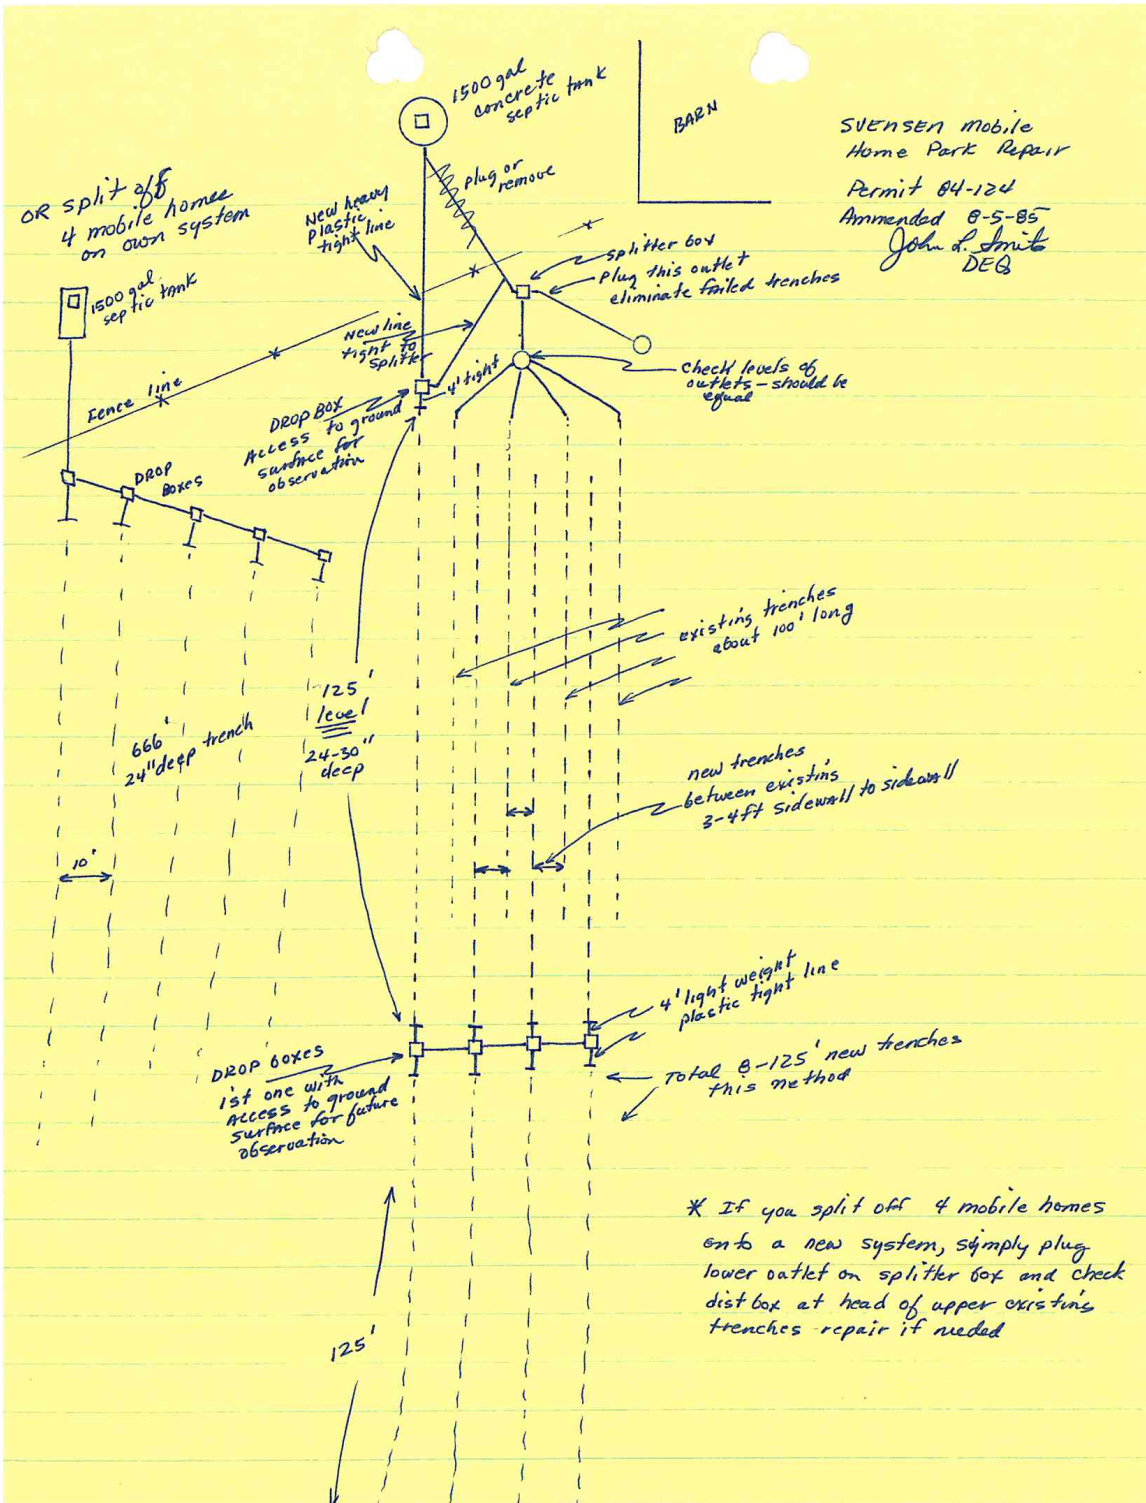 1500 gal
concrete
septic tank
BARN
SVENSEN Mobile
Home Park Repair
Permit 84-124
Ammended 8-5-85
John L. Smits
DEQ
plug or
remove
OR split off
4 mobile homes
on own system
New heavy
plastic
tight line
splitter box
Plug this outlet
eliminate failed trenches
1500 gal.
septic tank
New line
tight to
splitter
4' tight
check levels of
outlets - should be
equal
Fence line
DROP BOX
Access to ground
surface for
observation
DROP
Boxes
existing trenches
about 100' long
125'
level
24-30"
deep
666'
24" deep trench
new trenches
between existing
3-4ft sidewall to sidewall
10'
4' light weight
plastic tight line
DROP boxes
1st one with
Access to ground
surface for future
observation
Total 8-125' new trenches
this method
* If you split off 4 mobile homes
onto a new system, simply plug
lower outlet on splitter box and check
dist box at head of upper existing
trenches - repair if needed
125'